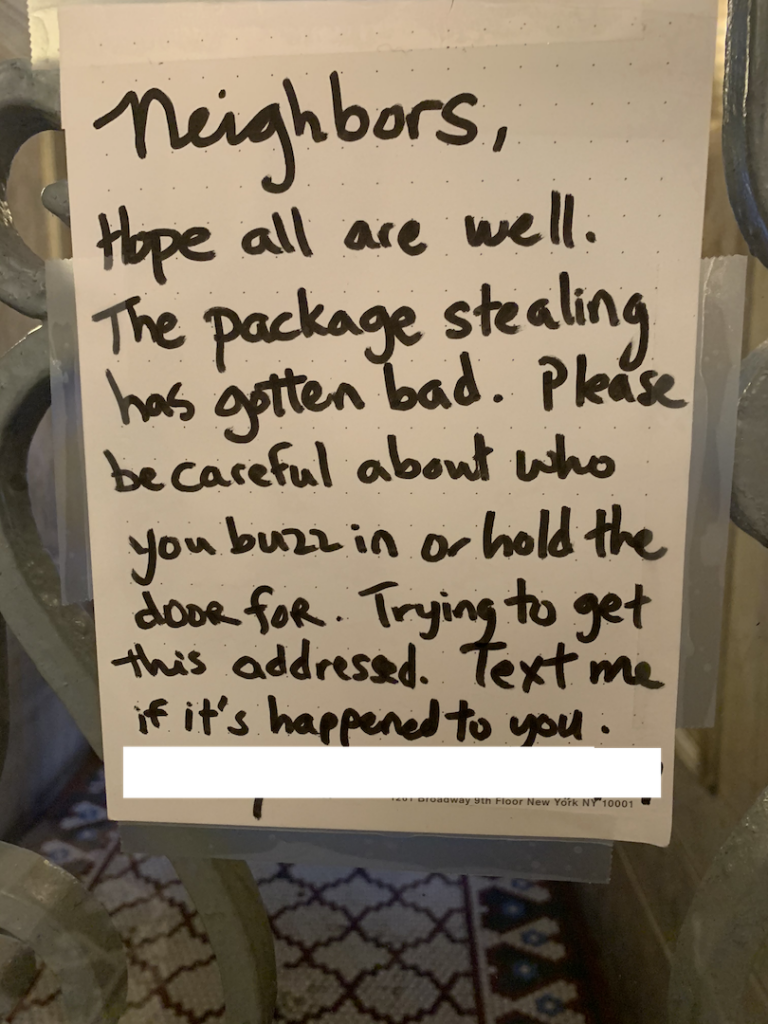 Neighbors,
Hope all are well.
The package stealing
has gotten bad. Please
be careful about who
you buzz in or hold the
door for. Trying to get
this addressed. Text me
if it's happened to you.
1201 Broadway 9th Floor New York NY 10001